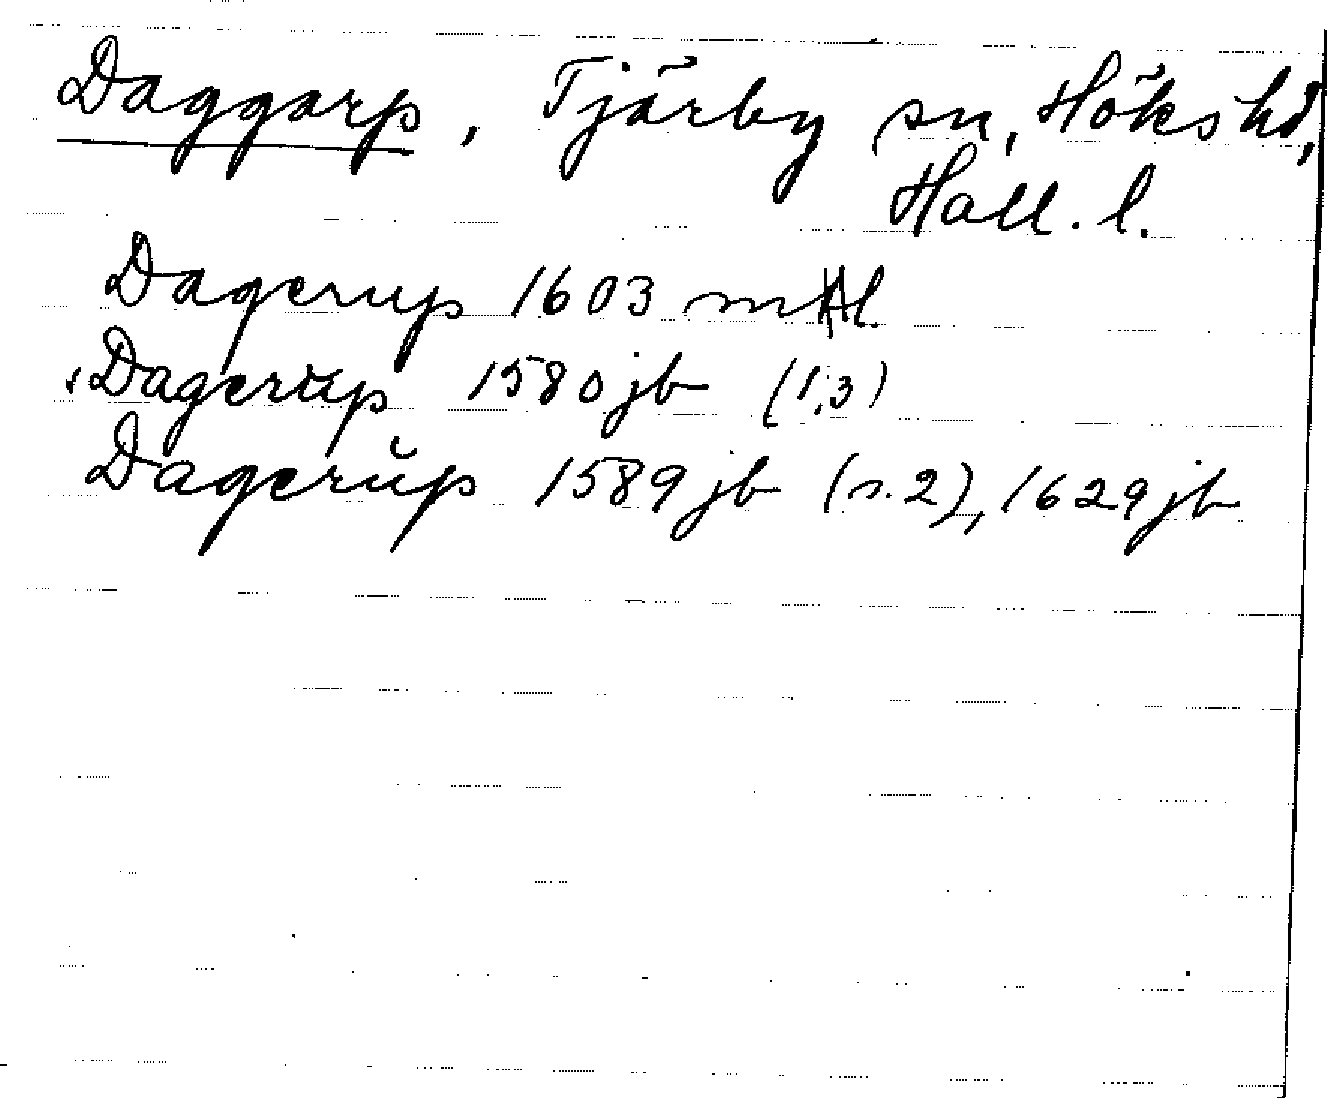 Daggarp, Tjärby sn, Höks hd,
Hall. l.
Dagerup 1603 ml
Dagerup 1580 jb (1,3)
Dagerŭp 1589 jb (s. 2), 1629 jb